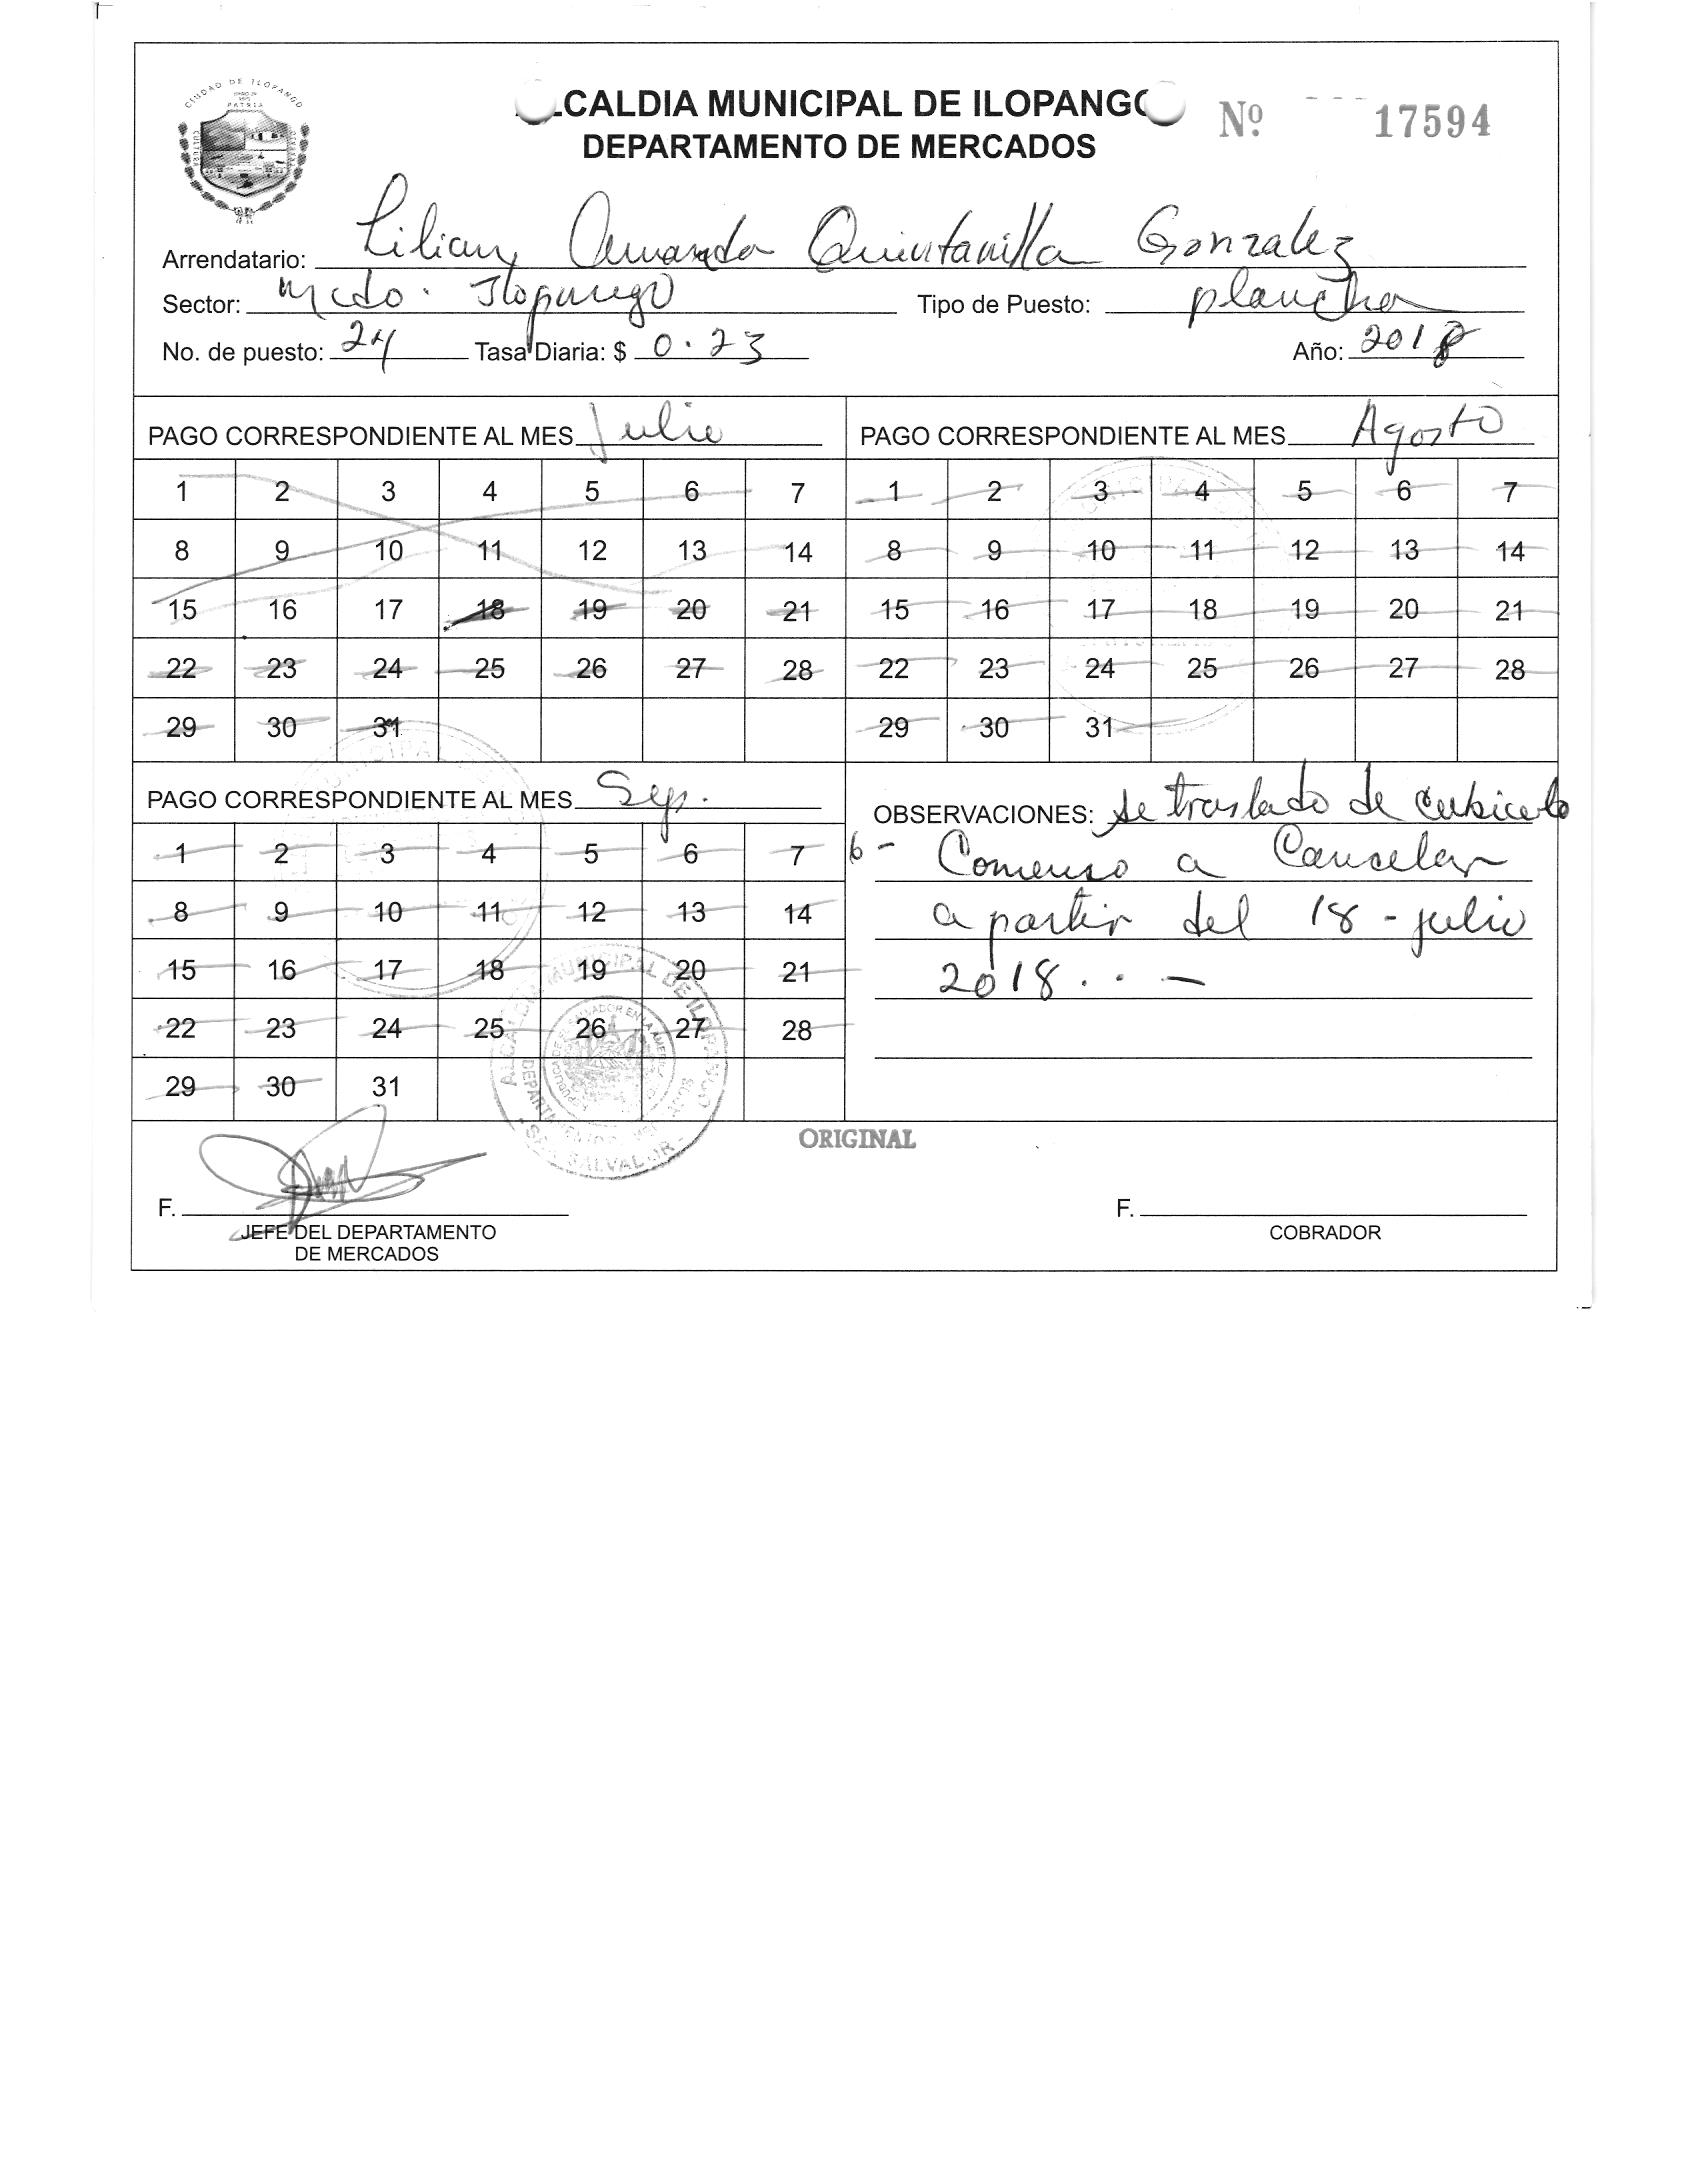 CIUDAD DE ILOPANGO
PATRIA
CULTURA
ALCALDIA MUNICIPAL DE ILOPANGO
Nº 17594
DEPARTAMENTO DE MERCADOS
Arrendatario: Lilian Amanda Quintanilla Gonzalez
Sector: Mcdo. Ilopango Tipo de Puesto: plancha
No. de puesto: 24 Tasa Diaria: $ 0.23 Año: 2018
PAGO CORRESPONDIENTE AL MES Julio
1 2 3 4 5 6 7
8 9 10 11 12 13 14
15 16 17 18 19 20 21
22 23 24 25 26 27 28
29 30 31
PAGO CORRESPONDIENTE AL MES Agosto
1 2 3 4 5 6 7
8 9 10 11 12 13 14
15 16 17 18 19 20 21
22 23 24 25 26 27 28
29 30 31
PAGO CORRESPONDIENTE AL MES Sep.
1 2 3 4 5 6 7
8 9 10 11 12 13 14
15 16 17 18 19 20 21
22 23 24 25 26 27 28
29 30 31
OBSERVACIONES: se traslado de cubiculo
6 - Comenso a Cancelar
a partir del 18 - julio
2018 . . -
ALCALDIA MUNICIPAL DE ILOPANGO
SAN SALVADOR
ORIGINAL
F.
JEFE DEL DEPARTAMENTO
DE MERCADOS
F.
COBRADOR